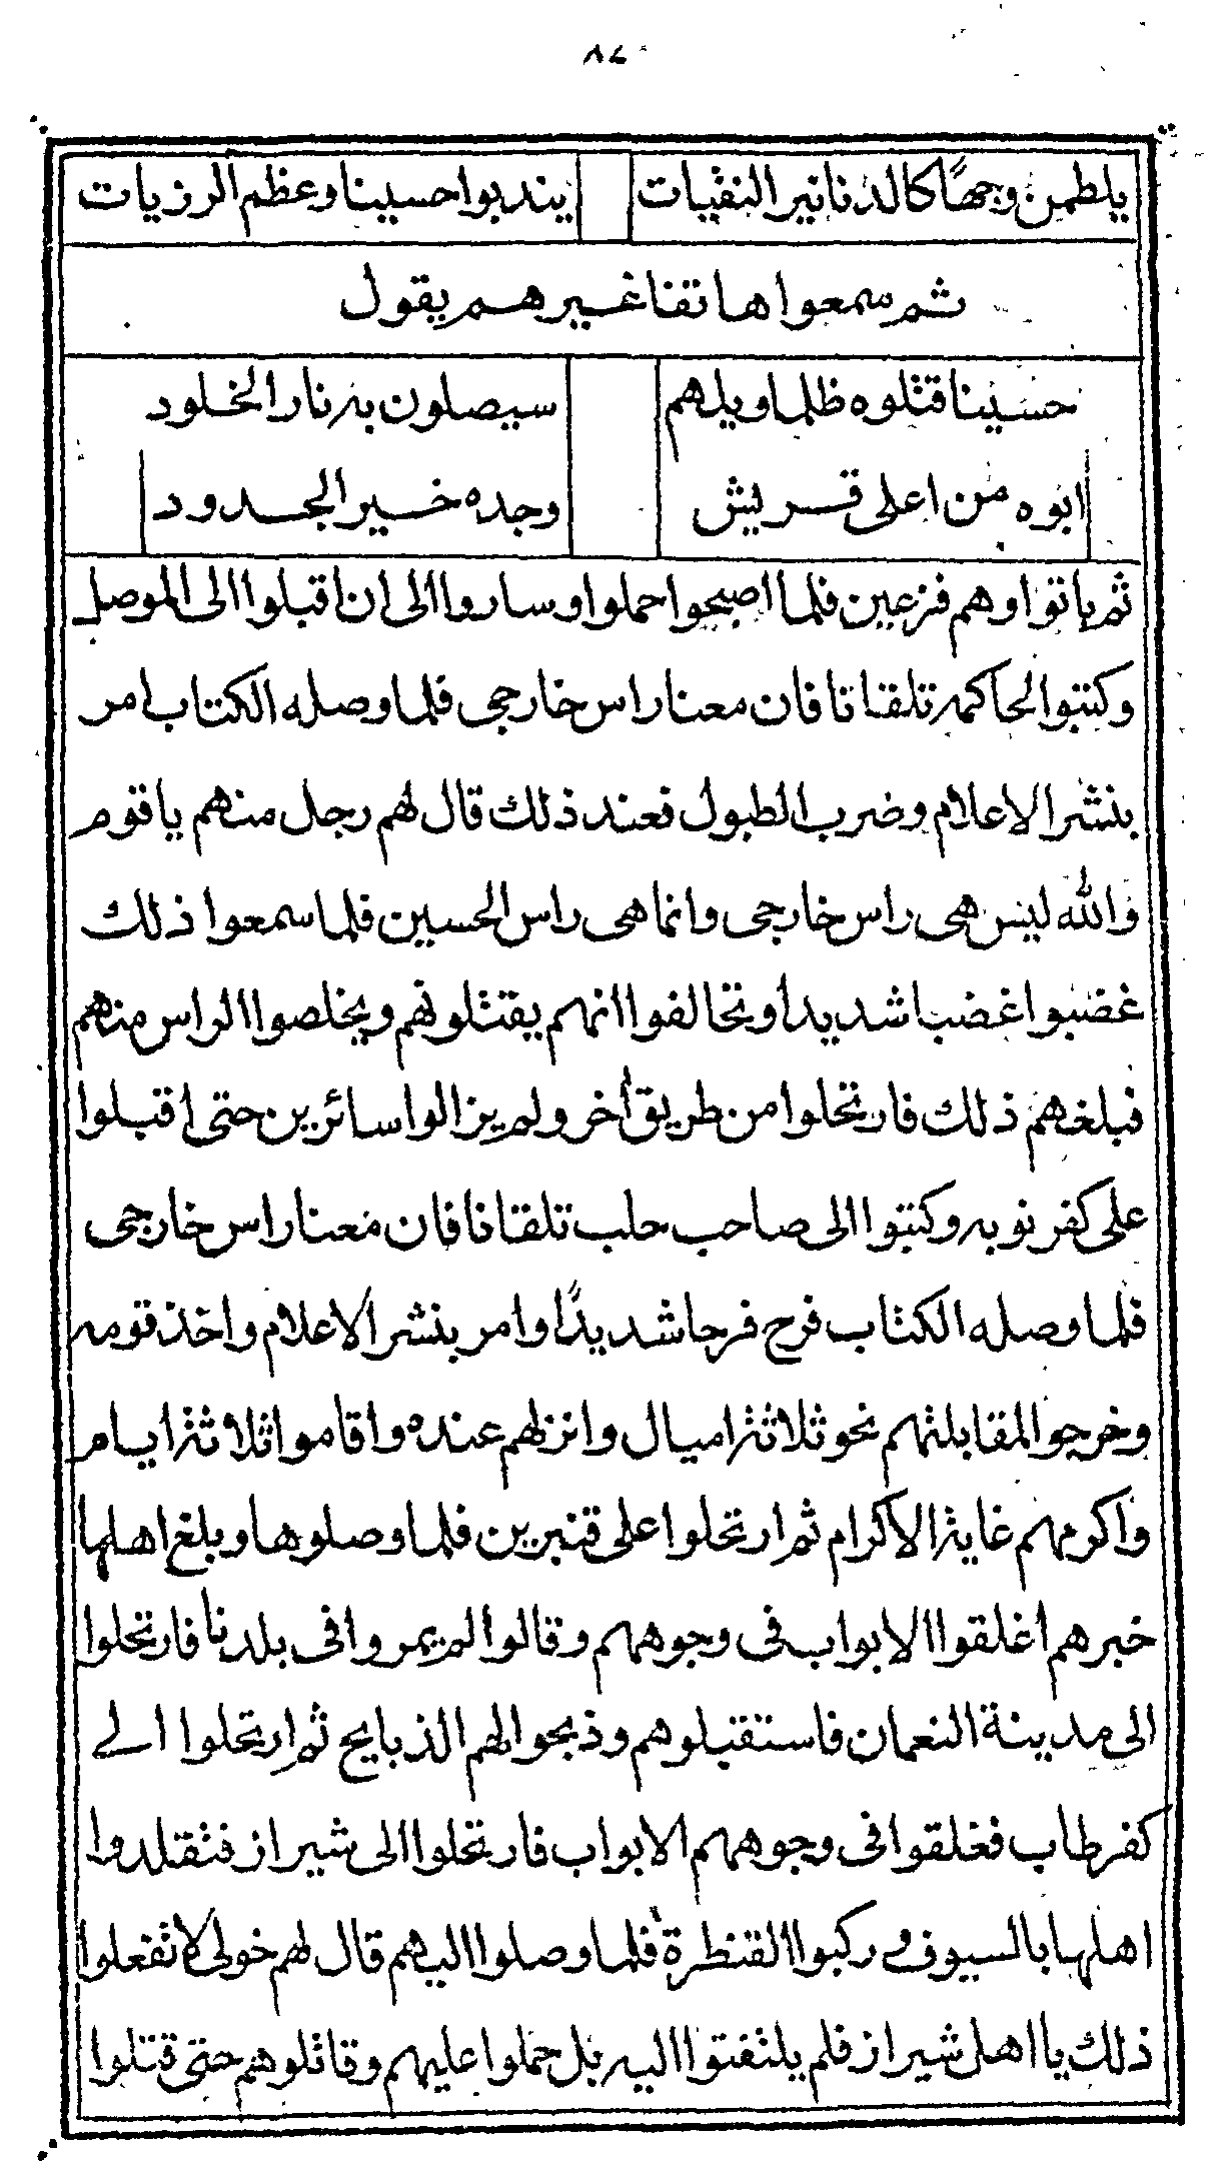 ٨٤
يلطمن وجهًا كالدنانير النقيات يندبوا حسينا وعظم الرزيات
ثم سمعوا هاتفا غيرهم يقول
حسينا قتلوه ظلما ويلهم سيصلون به نار الخلود
ابوه من اعلى قريش وجده خير الجدود
ثم باتوا وهم فزعين فلما اصبحوا حملوا وساروا الى ان اقبلوا الى الموصل
وكتبوا لحاكمه تلقاتا فان معنا راس خارجى فلما وصله الكتاب امر
بنشر الاعلام وضرب الطبول فعند ذلك قال لهم رجل منهم يا قوم
والله ليس هى راس خارجى وانما هى راس الحسين فلما سمعوا ذلك
غضبوا غضبا شديدا وتحالفوا انهم يقتلونهم ويخلصوا الراس منهم
فبلغهم ذلك فارتحلوا من طريق أخر ولم يزالوا سائرين حتى اقبلوا
على كفر نوبه وكتبوا الى صاحب حلب تلقانا فان معنا راس خارجى
فلما وصله الكتاب فرح فرحا شديدًا وامر بنشر الاعلام واخذ قومه
وخرجوا لمقابلتهم نحو ثلاثة اميال وانزلهم عنده واقاموا ثلاثة ايام
واكرمهم غاية الاكرام ثم ارتحلوا على قنبرين فلما وصلوها وبلغ اهلها
خبرهم اغلقوا الابواب فى وجوههم وقالوا لم يمروا فى بلدنا فارتحلوا
الى مدينة النعمان فاستقبلوهم وذبحوا لهم الذبايح ثم ارتحلوا الے
كفرطاب فغلقوا فى وجوههم الابواب فارتحلوا الى شيراز فتقلدوا
اهلها بالسيوف و ركبوا القنطرة فلما وصلوا اليهم قال لهم خولى لا تفعلوا
ذلك يا اهل شيراز فلم يلتفتوا اليه بل حملوا عليهم وقاتلوهم حتى قتلوا